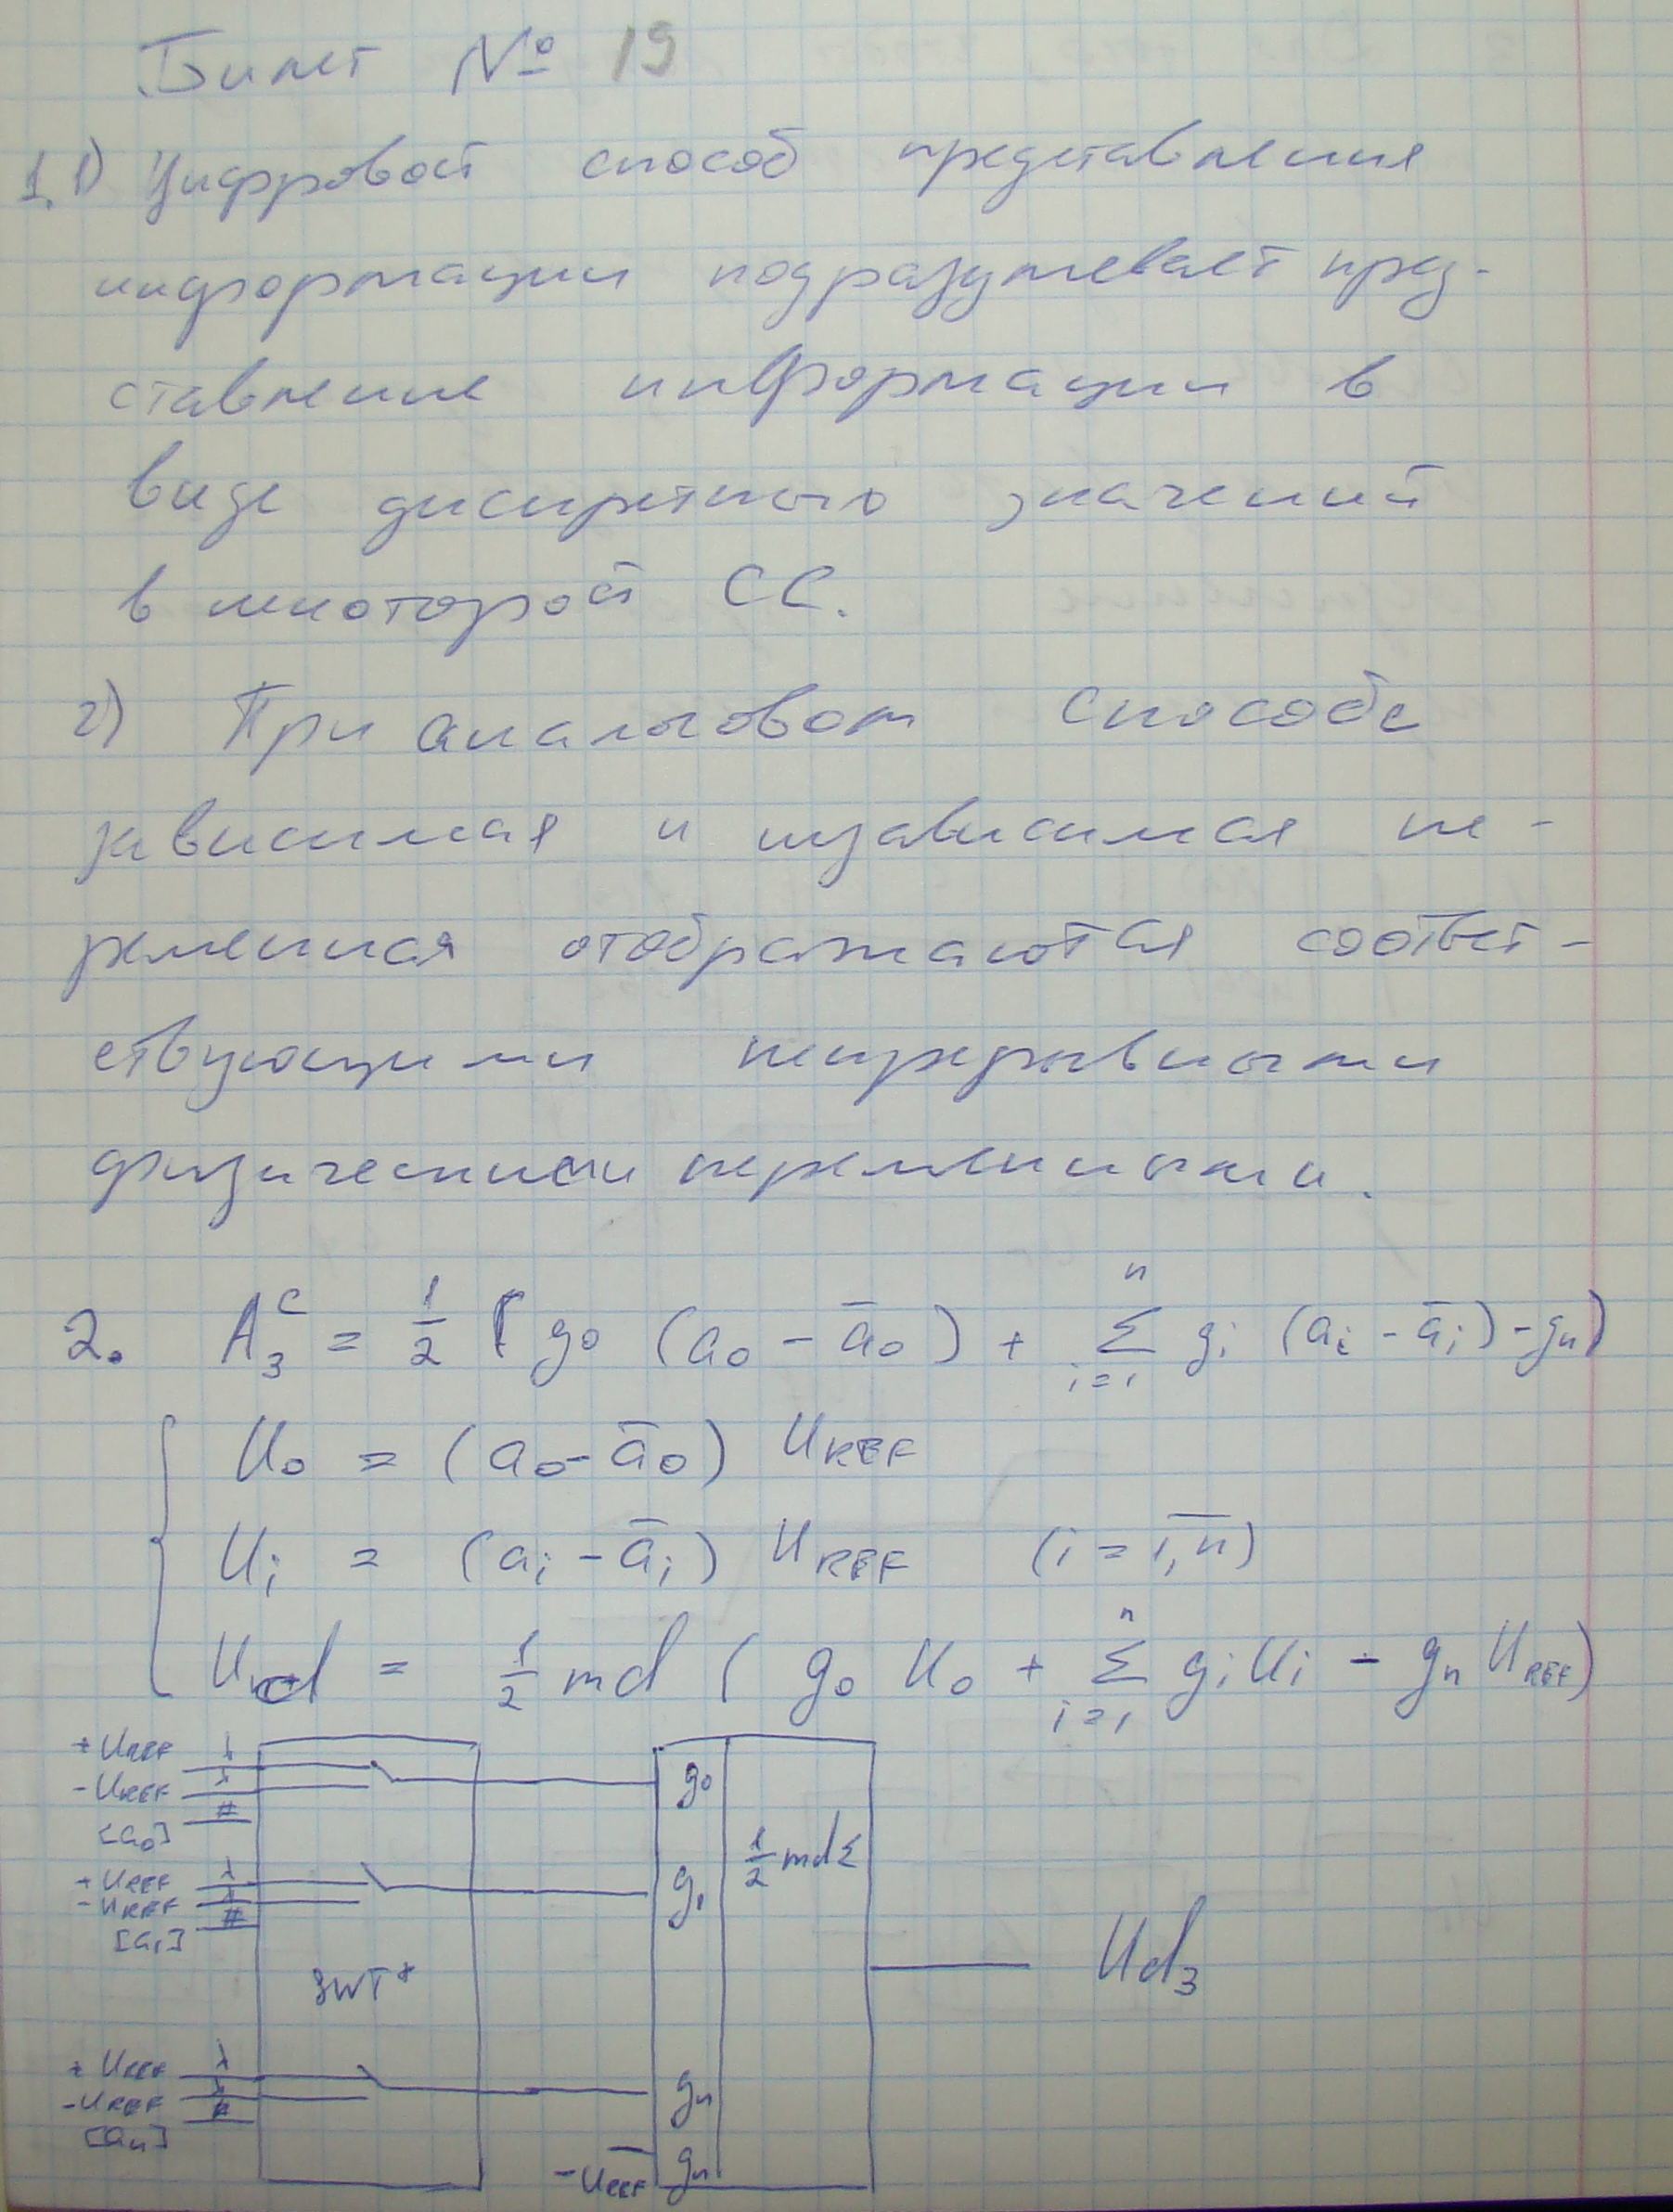 Билет № 19
1. 1) Цифровой способ представления
информации подразумевает пред-
ставление информации в
виде дискретного значений
в некоторой СС.
2) При аналоговом способе
зависимая и независимая пе-
ременная отображаются соответ-
ствующими непрерывными
физическими переменными.
2. A₃ᶜ = 1/2 ( g₀ (a₀ - ā₀) + Σ gᵢ (aᵢ - āᵢ) - gₙ)
n
i=1
U₀ = (a₀ - ā₀) U_REF
Uᵢ = (aᵢ - āᵢ) U_REF (i = 1,n)
d = 1/2 md ( g₀ U₀ + Σ gᵢ Uᵢ - gₙ U_REF)
n
i=1
+ U_REF λ
- U_REF λ
[a₀] #
g₀
1/2 md Σ
+ U_REF λ
- U_REF λ
[a₁] #
g₁
SWT*
Ud₃
+ U_REF λ
- U_REF λ
[aₙ] #
gₙ
- U_REF gₙ